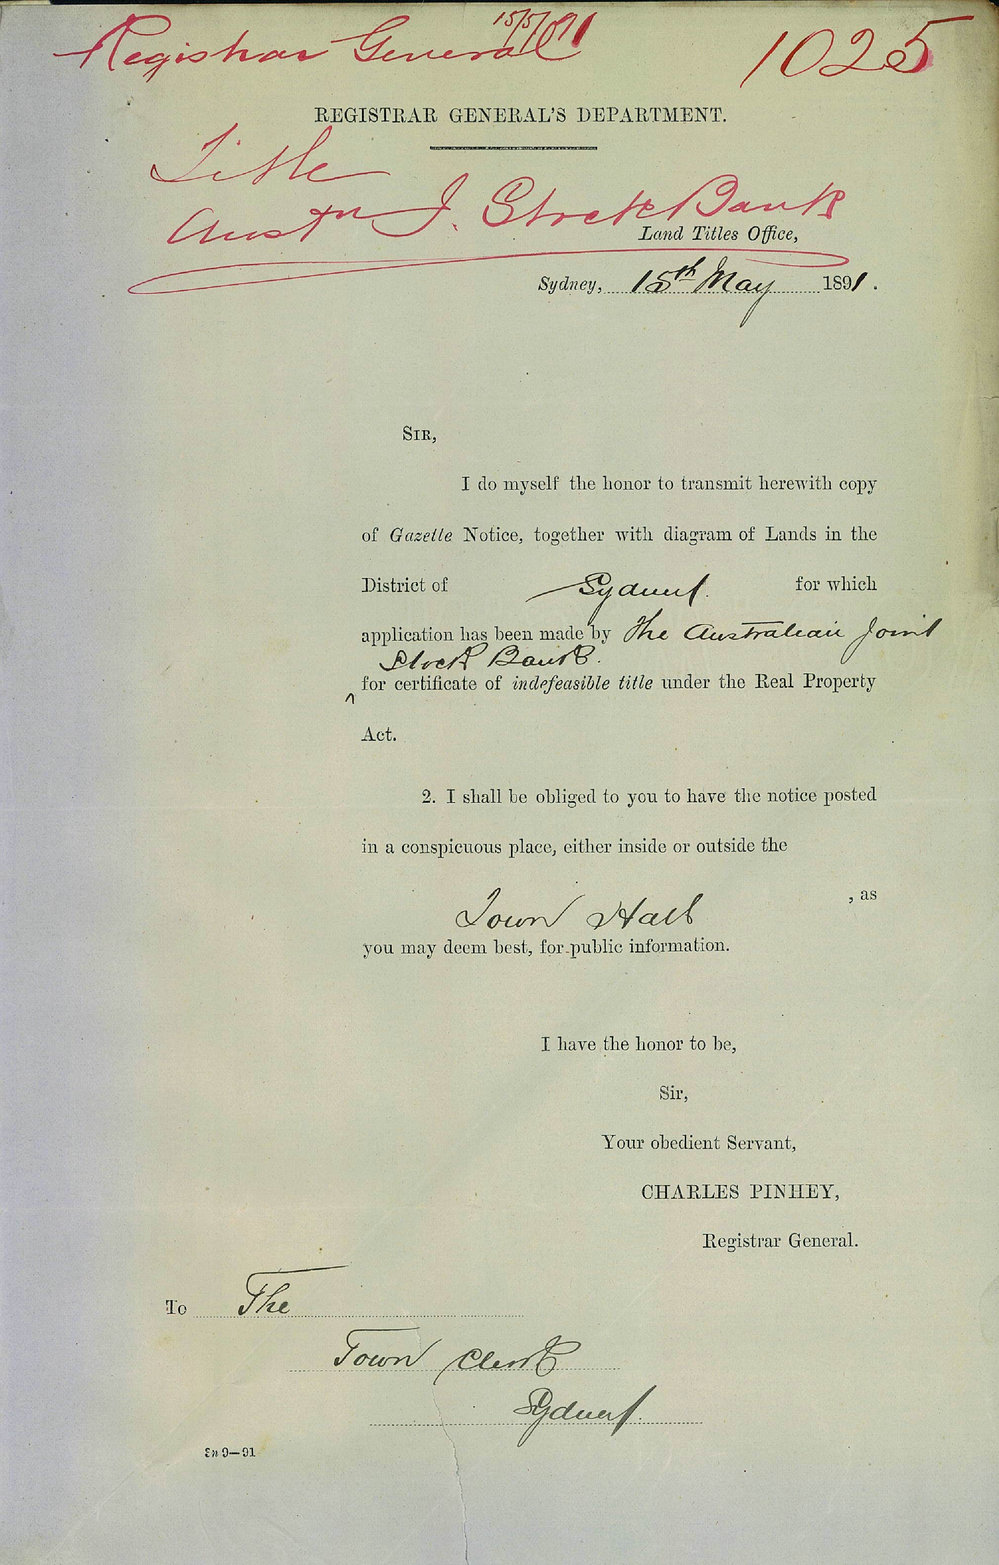 15/5/91
Registrar General
1025
REGISTRAR GENERAL'S DEPARTMENT.
Title
Austn J. Stock Bank
Land Titles Office,
Sydney, 15th May 1891.
SIR,
I do myself the honor to transmit herewith copy
of Gazette Notice, together with diagram of Lands in the
District of Sydney. for which
application has been made by The Australian Joint
Stock Bank.
^ for certificate of indefeasible title under the Real Property
Act.
2. I shall be obliged to you to have the notice posted
in a conspicuous place, either inside or outside the
Town Hall , as
you may deem best, for public information.
I have the honor to be,
Sir,
Your obedient Servant,
CHARLES PINHEY,
Registrar General.
To The
Town Clerk
Sydney.
9—91